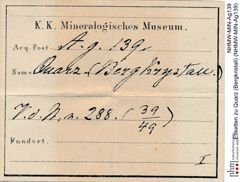 K. K. Mineralogisches Museum.
Acq. Post A. g. 139.
Name Quarz (Bergkrystall.)
V. d. N. n. 288. (39/49)
Fundort.
I
NHMW-MIN-Ag139
Etiketten zu Quarz (Bergkristall) (NHMW-MIN-Ag139)
nhm